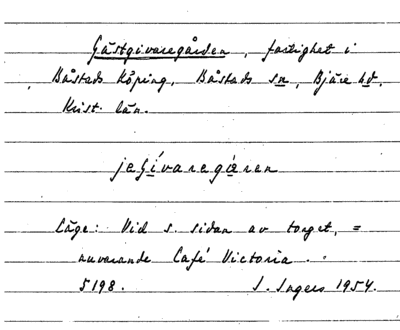 Gästgivaregården, fastighet i
Båstads Köping, Båstads sn, Bjäre hd.
Krist. län.
jeśivaregæren
Läge: Vid s. sidan av torget, =
nuvarande Café Victoria.
5198. I. Ingers 1954.